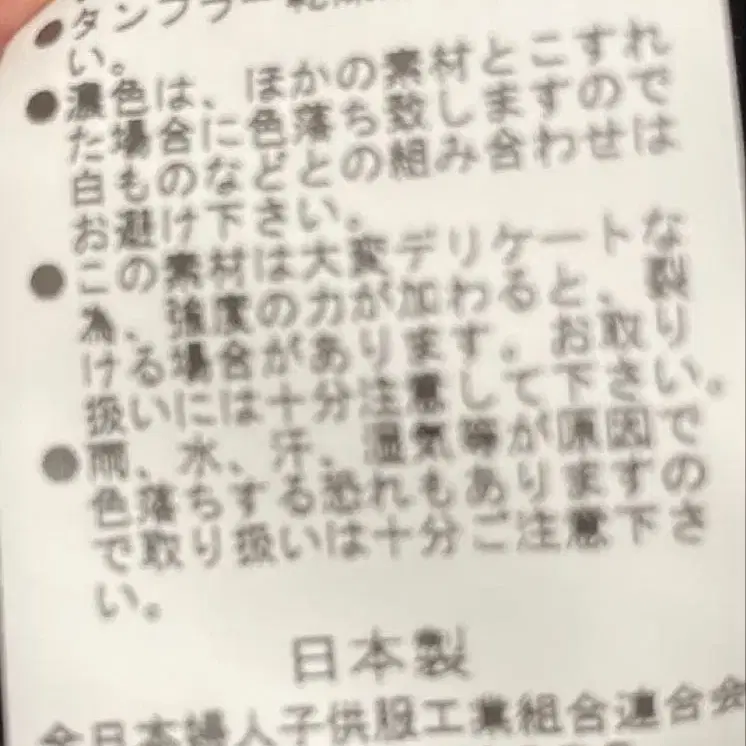 ●タンブラー乾燥
い。
●濃色は、ほかの素材とこすれ
た場合に色落ち致しますので
白ものなどとの組み合わせは
お避け下さい。
●この素材は大変デリケートな
為、強度の力が加わると、裂
ける場合があります。お取り
扱いには十分注意して下さい。
●雨、水、汗、湿気等が原因で
色落ちする恐れもありますの
で取り扱いは十分ご注意下さ
い。
日本製
全日本婦人子供服工業組合連合会